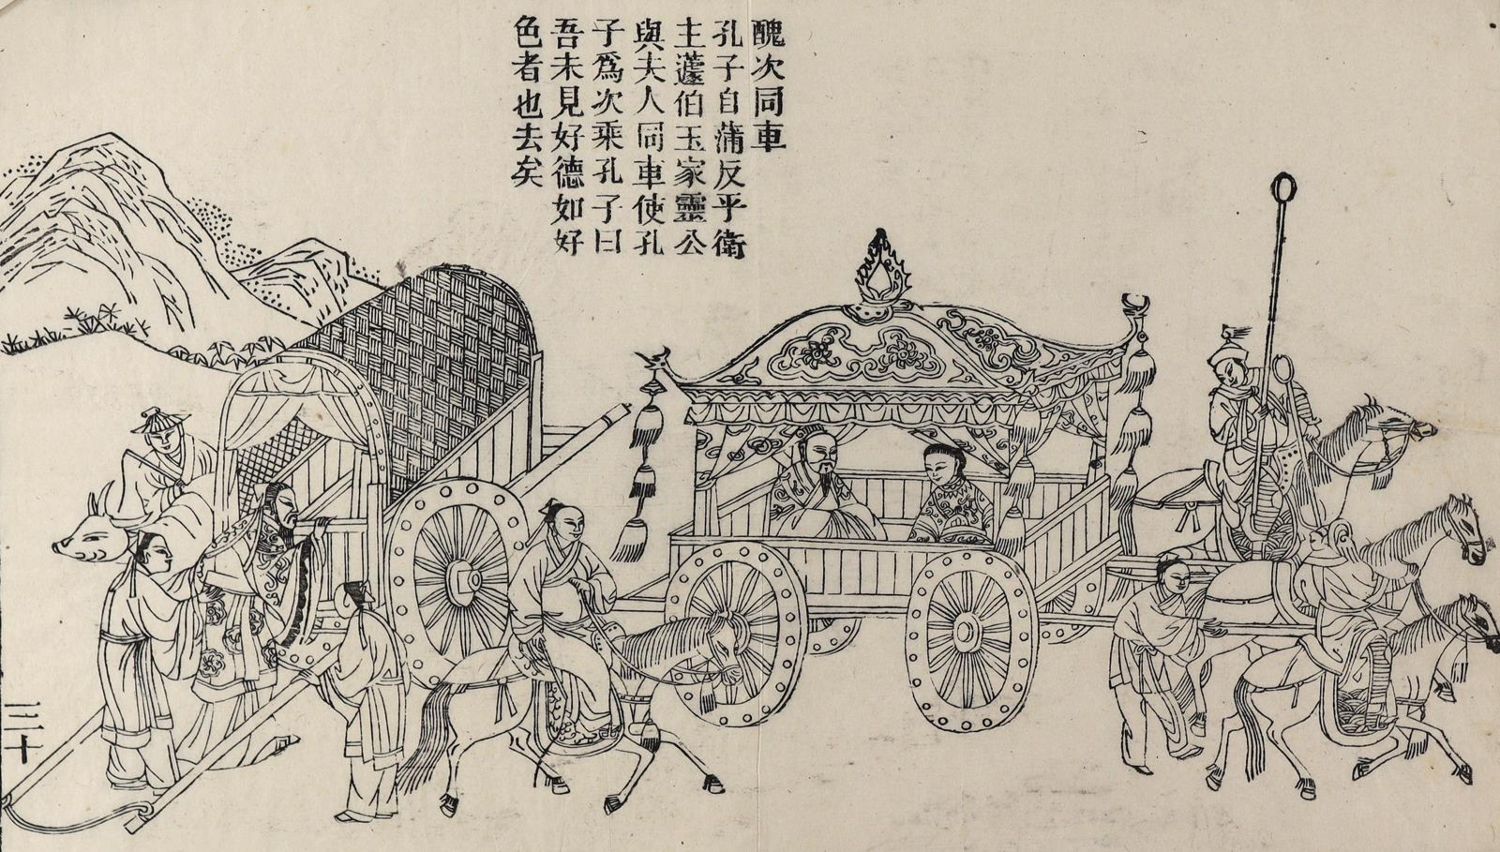 醜次同車
孔子自蒲反乎衛
主蘧伯玉家靈公
與夫人同車使孔
子爲次乘孔子曰
吾未見好德如好
色者也去矣
三十